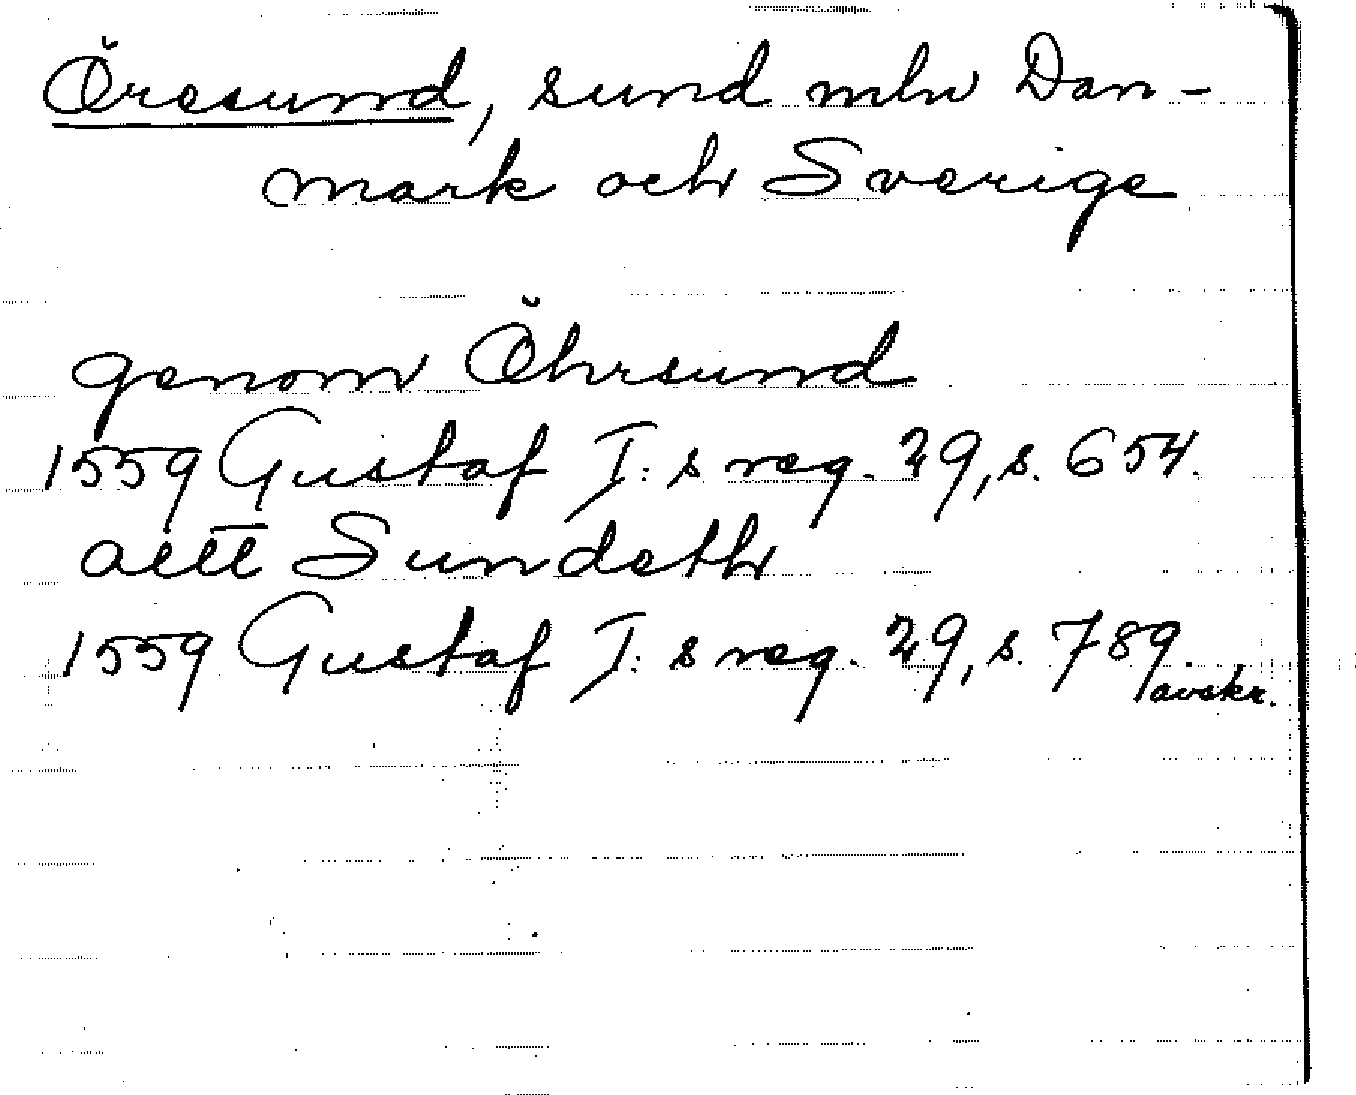 Öresund, sund mln Dan-
mark och Sverige
genom Öhrsund
1559 Gustaf I:s reg. 29, s. 654.
Sundeth
1559 Gustaf I:s reg. 29, s. 789.
avskr.